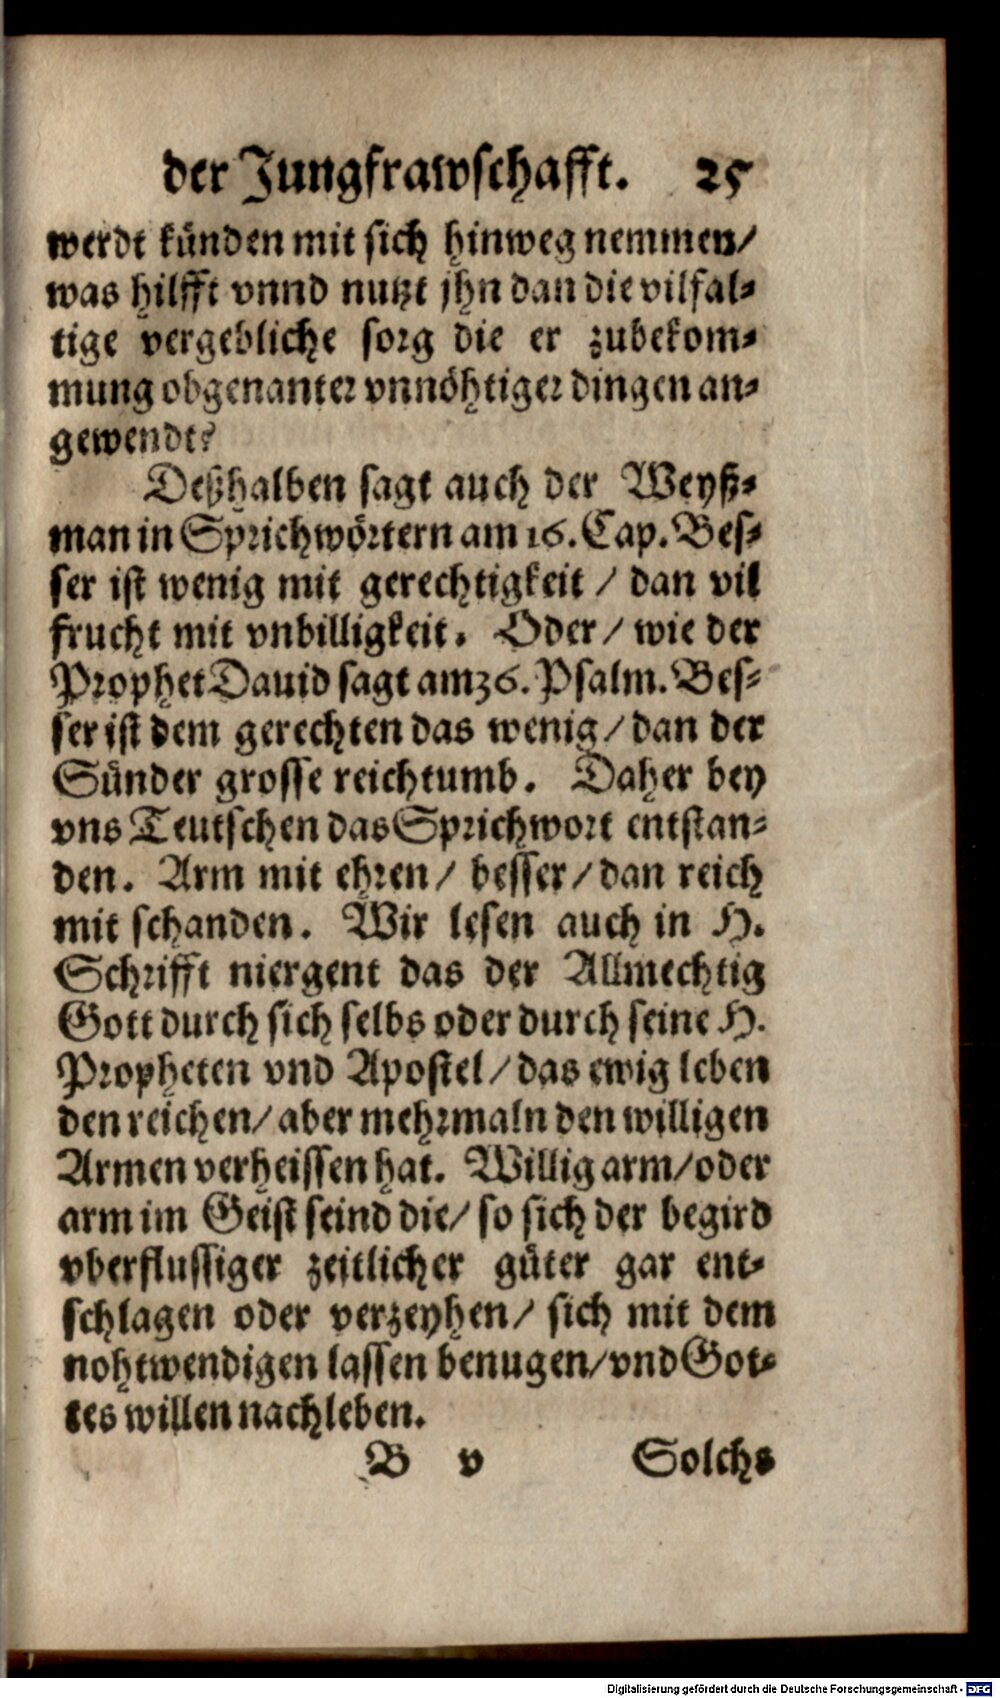 der Jungfrawschafft. 25
werdt künden mit sich hinweg nemmen/
was hilfft vnnd nutzt jhn dan die vilfal-
tige vergebliche sorg die er zubekom-
mung obgenanter vnnöhtiger dingen an-
gewendt?
Deßhalben sagt auch der Weyß-
man in Sprichwörtern am 16. Cap. Bes-
ser ist wenig mit gerechtigkeit / dan vil
frucht mit vnbilligkeit. Oder / wie der
Prophet Dauid sagt am 36. Psalm. Bes-
ser ist dem gerechten das wenig / dan der
Sünder grosse reichtumb. Daher bey
vns Teutschen das Sprichwort entstan-
den. Arm mit ehren / besser / dan reich
mit schanden. Wir lesen auch in H.
Schrifft niergent das der Allmechtig
Gott durch sich selbs oder durch seine H.
Propheten vnd Apostel / das ewig leben
den reichen / aber mehrmaln den willigen
Armen verheissen hat. Willig arm / oder
arm im Geist seind die / so sich der begird
vberflussiger zeitlicher güter gar ent-
schlagen oder verzeyhen / sich mit dem
nohtwendigen lassen benugen / vnd Got-
tes willen nachleben.
B v Solchs
Digitalisierung gefördert durch die Deutsche Forschungsgemeinschaft - DFG